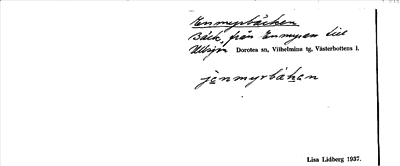 Enmyrbäcken
Bäck, från Enmyran till
Dorotea sn, Vilhelmina tg, Västerbottens l.
jènmyrbákan
Lisa Lidberg 1937.